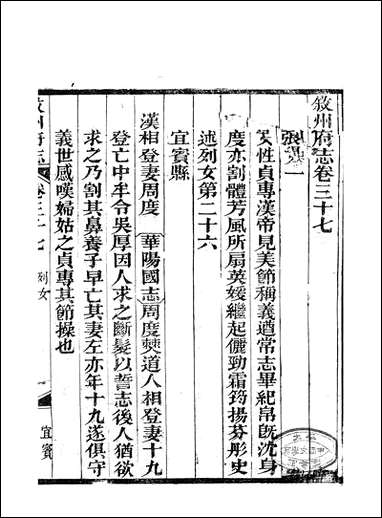 敘州府志卷三十七
列女一
女性貞專漢帝見美節稱義遒常志畢紀帛既沈身
度亦割體芳風所扇英媛繼起儷勁霜筠揚芬彤史
述列女第二十六
宜賓縣
漢相登妻周度 華陽國志周度僰道人相登妻十九
登亡中牟令吳厚因人求之斷髮以誓志後人猶欲
求之乃割其鼻養子早亡其妻左亦年十九遂俱守
義世感嘆婦姑之貞專其節操也
敘州府志 卷三十七 列女 一 宜賓